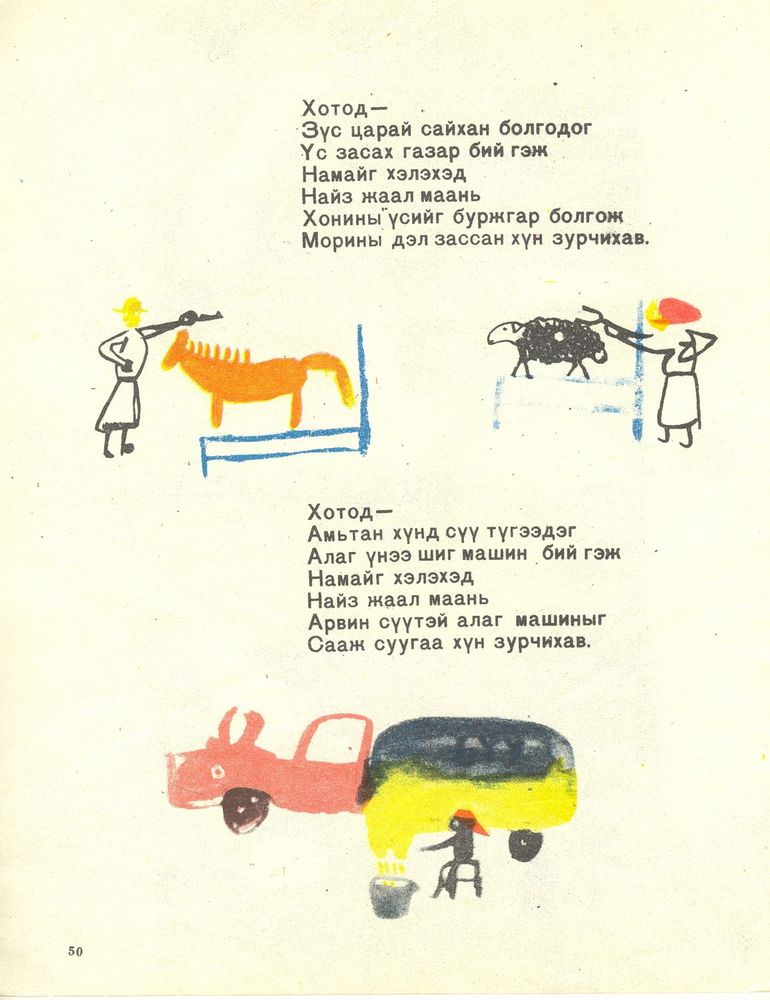 Хотод—
Зүс царай сайхан болгодог
Үс засах газар бий гэж
Намайг хэлэхэд
Найз жаал маань
Хонины үсийг буржгар болгож
Морины дэл зассан хүн зурчихав.
Хотод—
Амьтан хүнд сүү түгээдэг
Алаг үнээ шиг машин бий гэж
Намайг хэлэхэд
Найз жаал маань
Арвин сүүтэй алаг машиныг
Сааж суугаа хүн зурчихав.
50